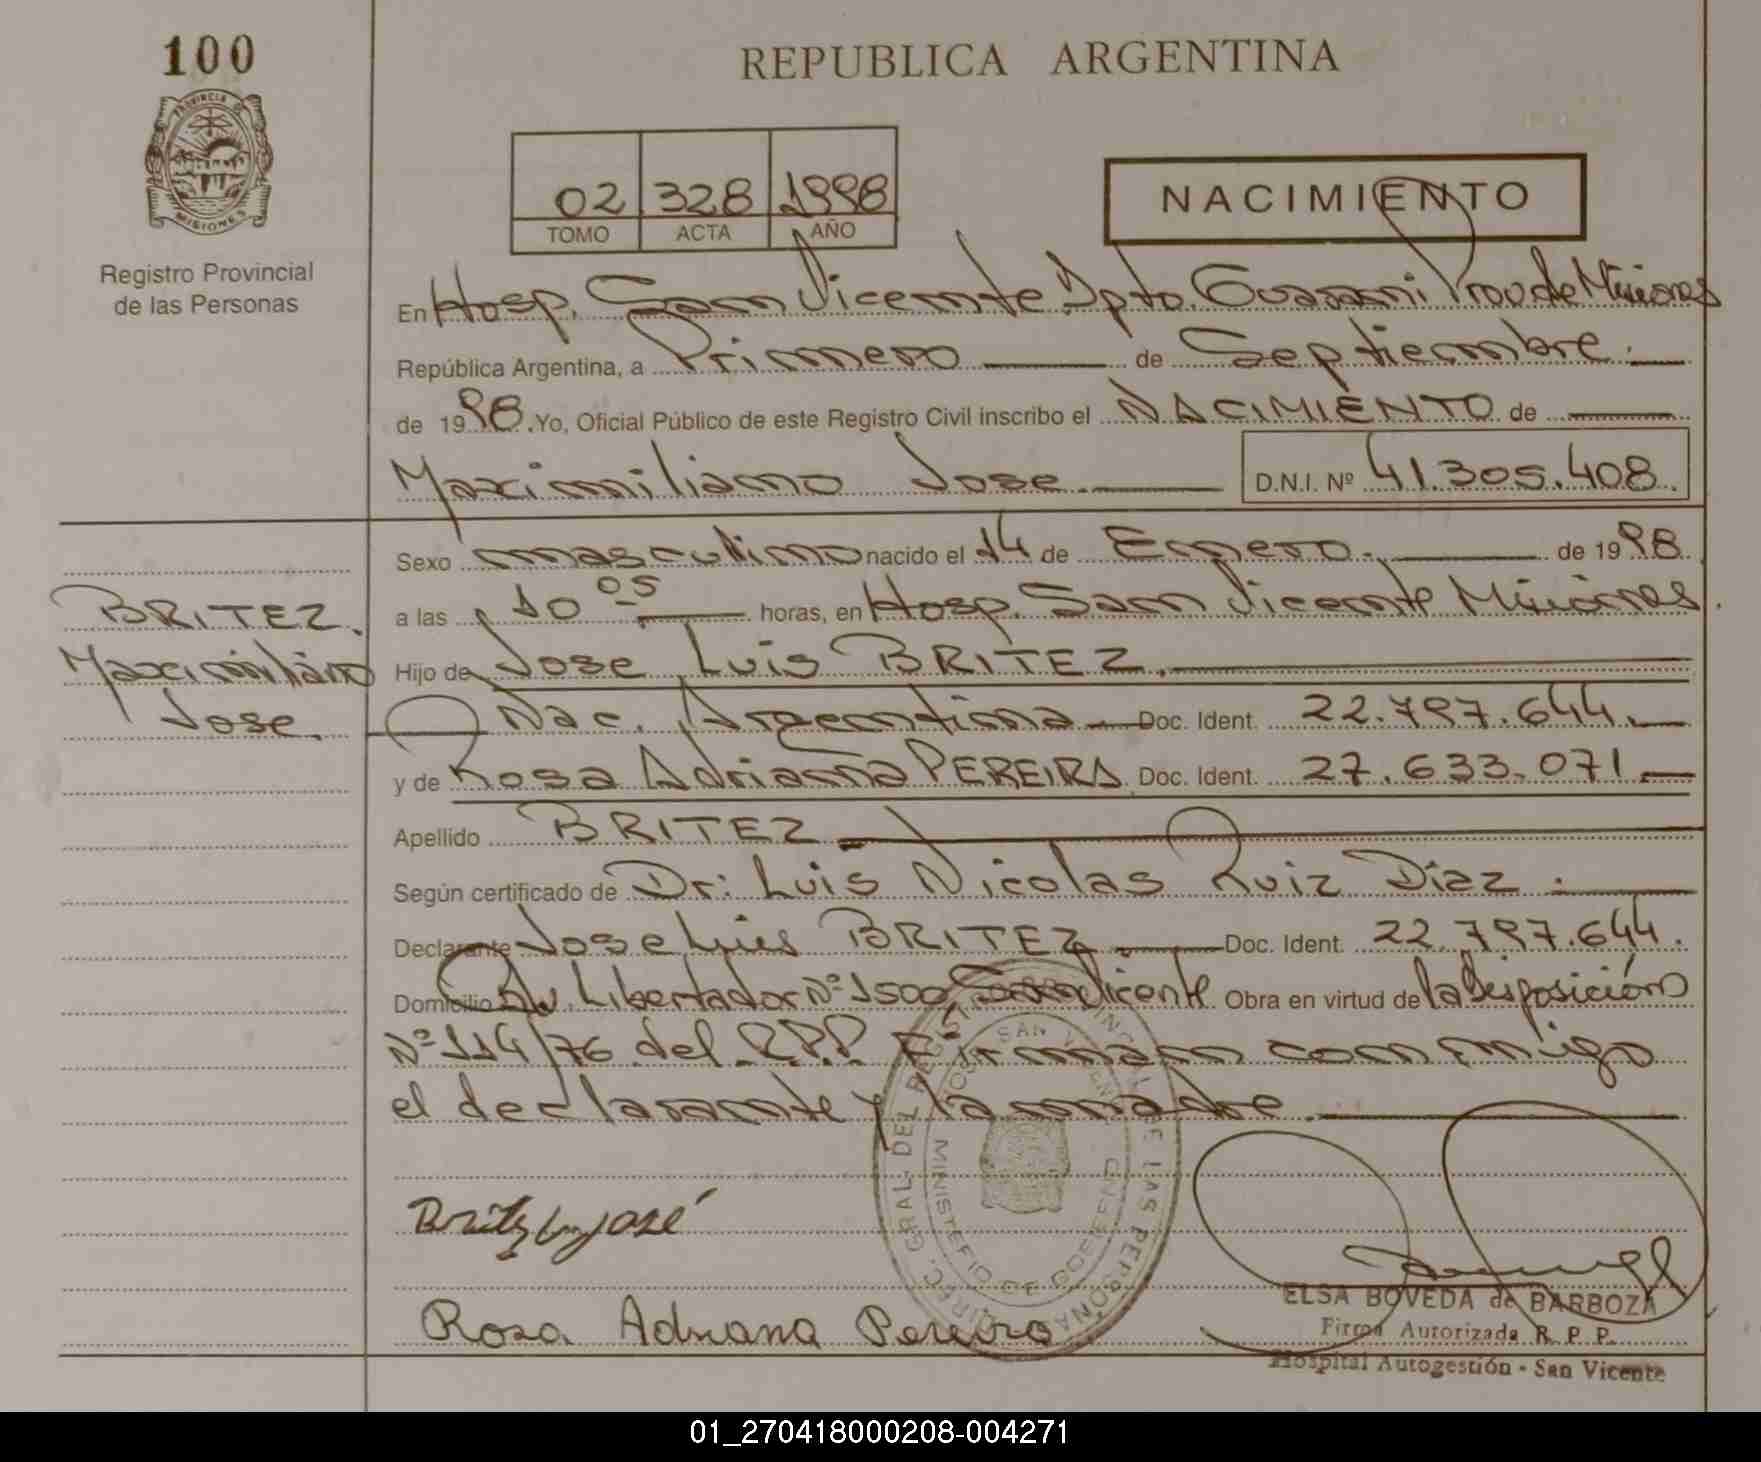 100
REPUBLICA ARGENTINA
PROVINCIA DE
MISIONES
Registro Provincial
de las Personas
02 328 1998
TOMO ACTA AÑO
NACIMIENTO
En Hosp. San Vicente Dpto. Guarani Prov de Misiones
República Argentina, a Primero de Septiembre.
de 1998. Yo, Oficial Público de este Registro Civil inscribo el NACIMIENTO de
Maximiliano Jose. D.N.I. Nº 41.305.408.
Sexo masculino nacido el 14 de Enero. de 1998.
a las 10 05 horas, en Hosp. San Vicente Misiones.
BRITEZ.
Maximiliano
Jose.
Hijo de Jose Luis BRITEZ.
Nac. Argentina Doc. Ident. 22.797.644.
y de Rosa Adriana PEREIRA Doc. Ident. 27.633.071
Apellido BRITEZ
Según certificado de Dr: Luis Nicolas Ruiz Diaz.
Declarante Jose Luis BRITEZ Doc. Ident. 22.797.644.
Domicilio Av. Libertador Nº 1500 San Vicente Obra en virtud de la Disposición
Nº 114/76 del R.P.P. Firman conmigo
el declarante y la madre.
Britez Luis José
Rosa Adriana Pereira
ELSA BOVEDA de BARBOZA
Firma Autorizada R. P. P.
Hospital Autogestión - San Vicente
01_270418000208-004271